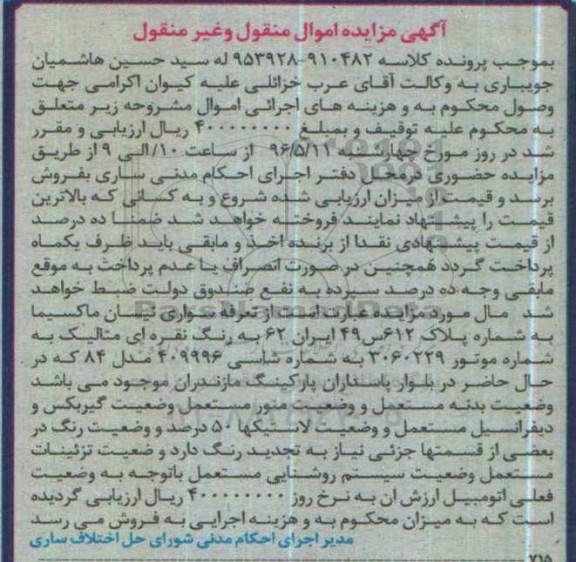 آگهی مزایده اموال منقول وغیر منقول
بموجب پرونده کلاسه ۹۱۰۴۸۲-۹۵۳۹۲۸ له سید حسین هاشمیان
جویباری به وکالت آقای عرب خزائلی علیه کیوان اکرامی جهت
وصول محکوم به و هزینه های اجرائی اموال مشروحه زیر متعلق
به محکوم علیه توقیف و بمبلغ ۴۰۰۰۰۰۰۰۰ ریال ارزیابی و مقرر
شد در روز مورخ چهارشنبه ۹۶/۵/۱۱ از ساعت ۱۰/الی ۹ از طریق
مزایده حضوری درمحل دفتر اجرای احکام مدنی ساری بفروش
برسد و قیمت از میزان ارزیابی شده شروع و به کسانی که بالاترین
قیمت را پیشنهاد نمایند فروخته خواهد شد ضمنا ده درصد
از قیمت پیشنهادی نقدا از برنده اخذ و مابقی باید ظرف یکماه
پرداخت گردد همچنین در صورت انصراف یا عدم پرداخت به موقع
مابقی وجه ده درصد سپرده به نفع صندوق دولت ضبط خواهد
شد مال مورد مزایده عبارت است از تعرفه سواری نیسان ماکسیما
به شماره پلاک ۶۱۲س۴۹ ایران ۶۲ به رنگ نقره ای متالیک به
شماره موتور ۳۰۶۰۲۲۹ به شماره شاسی ۴۰۹۹۹۶ مدل ۸۴ که در
حال حاضر در بلوار پاسداران پارکینگ مازندران موجود می باشد
وضعیت بدنه مستعمل و وضعیت موتور مستعمل وضعیت گیربکس و
دیفرانسیل مستعمل و وضعیت لاستیکها ۵۰ درصد و وضعیت رنگ در
بعضی از قسمتها جزئی نیاز به تجدید رنگ دارد و ضعیت تزئینات
مستعمل وضعیت سیستم روشنایی مستعمل باتوجه به وضعیت
فعلی اتومبیل ارزش ان به نرخ روز ۴۰۰۰۰۰۰۰۰ ریال ارزیابی گردیده
است که به میزان محکوم به و هزینه اجرایی به فروش می رسد
مدیر اجرای احکام مدنی شورای حل اختلاف ساری
۷۱۵